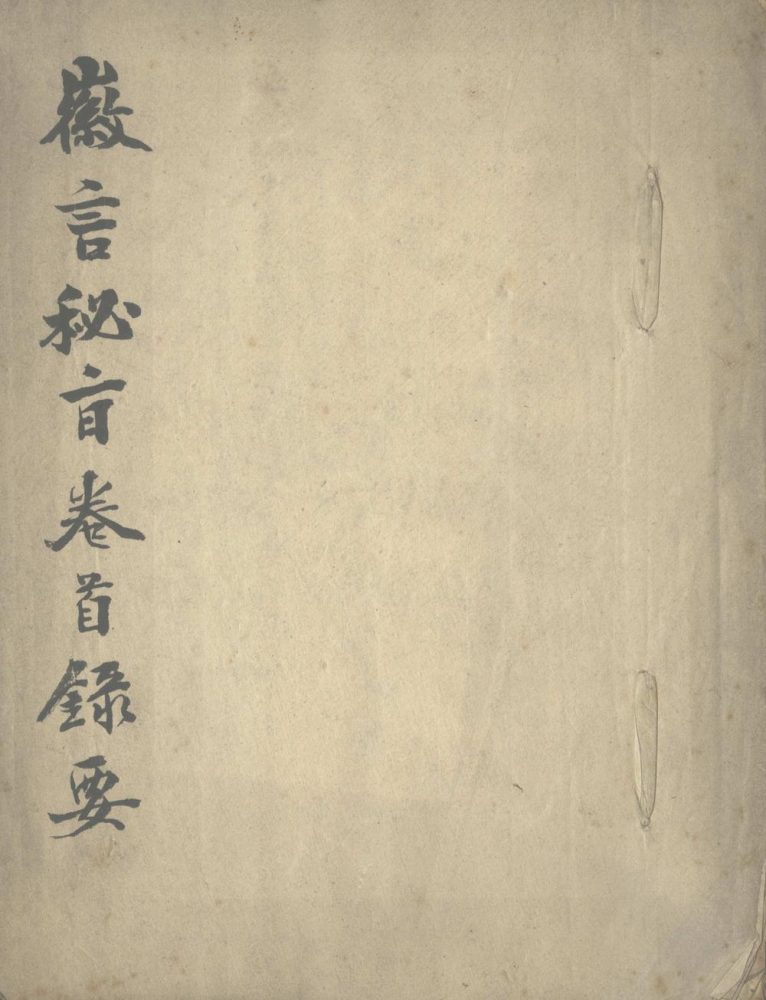 徽言秘旨卷首錄要